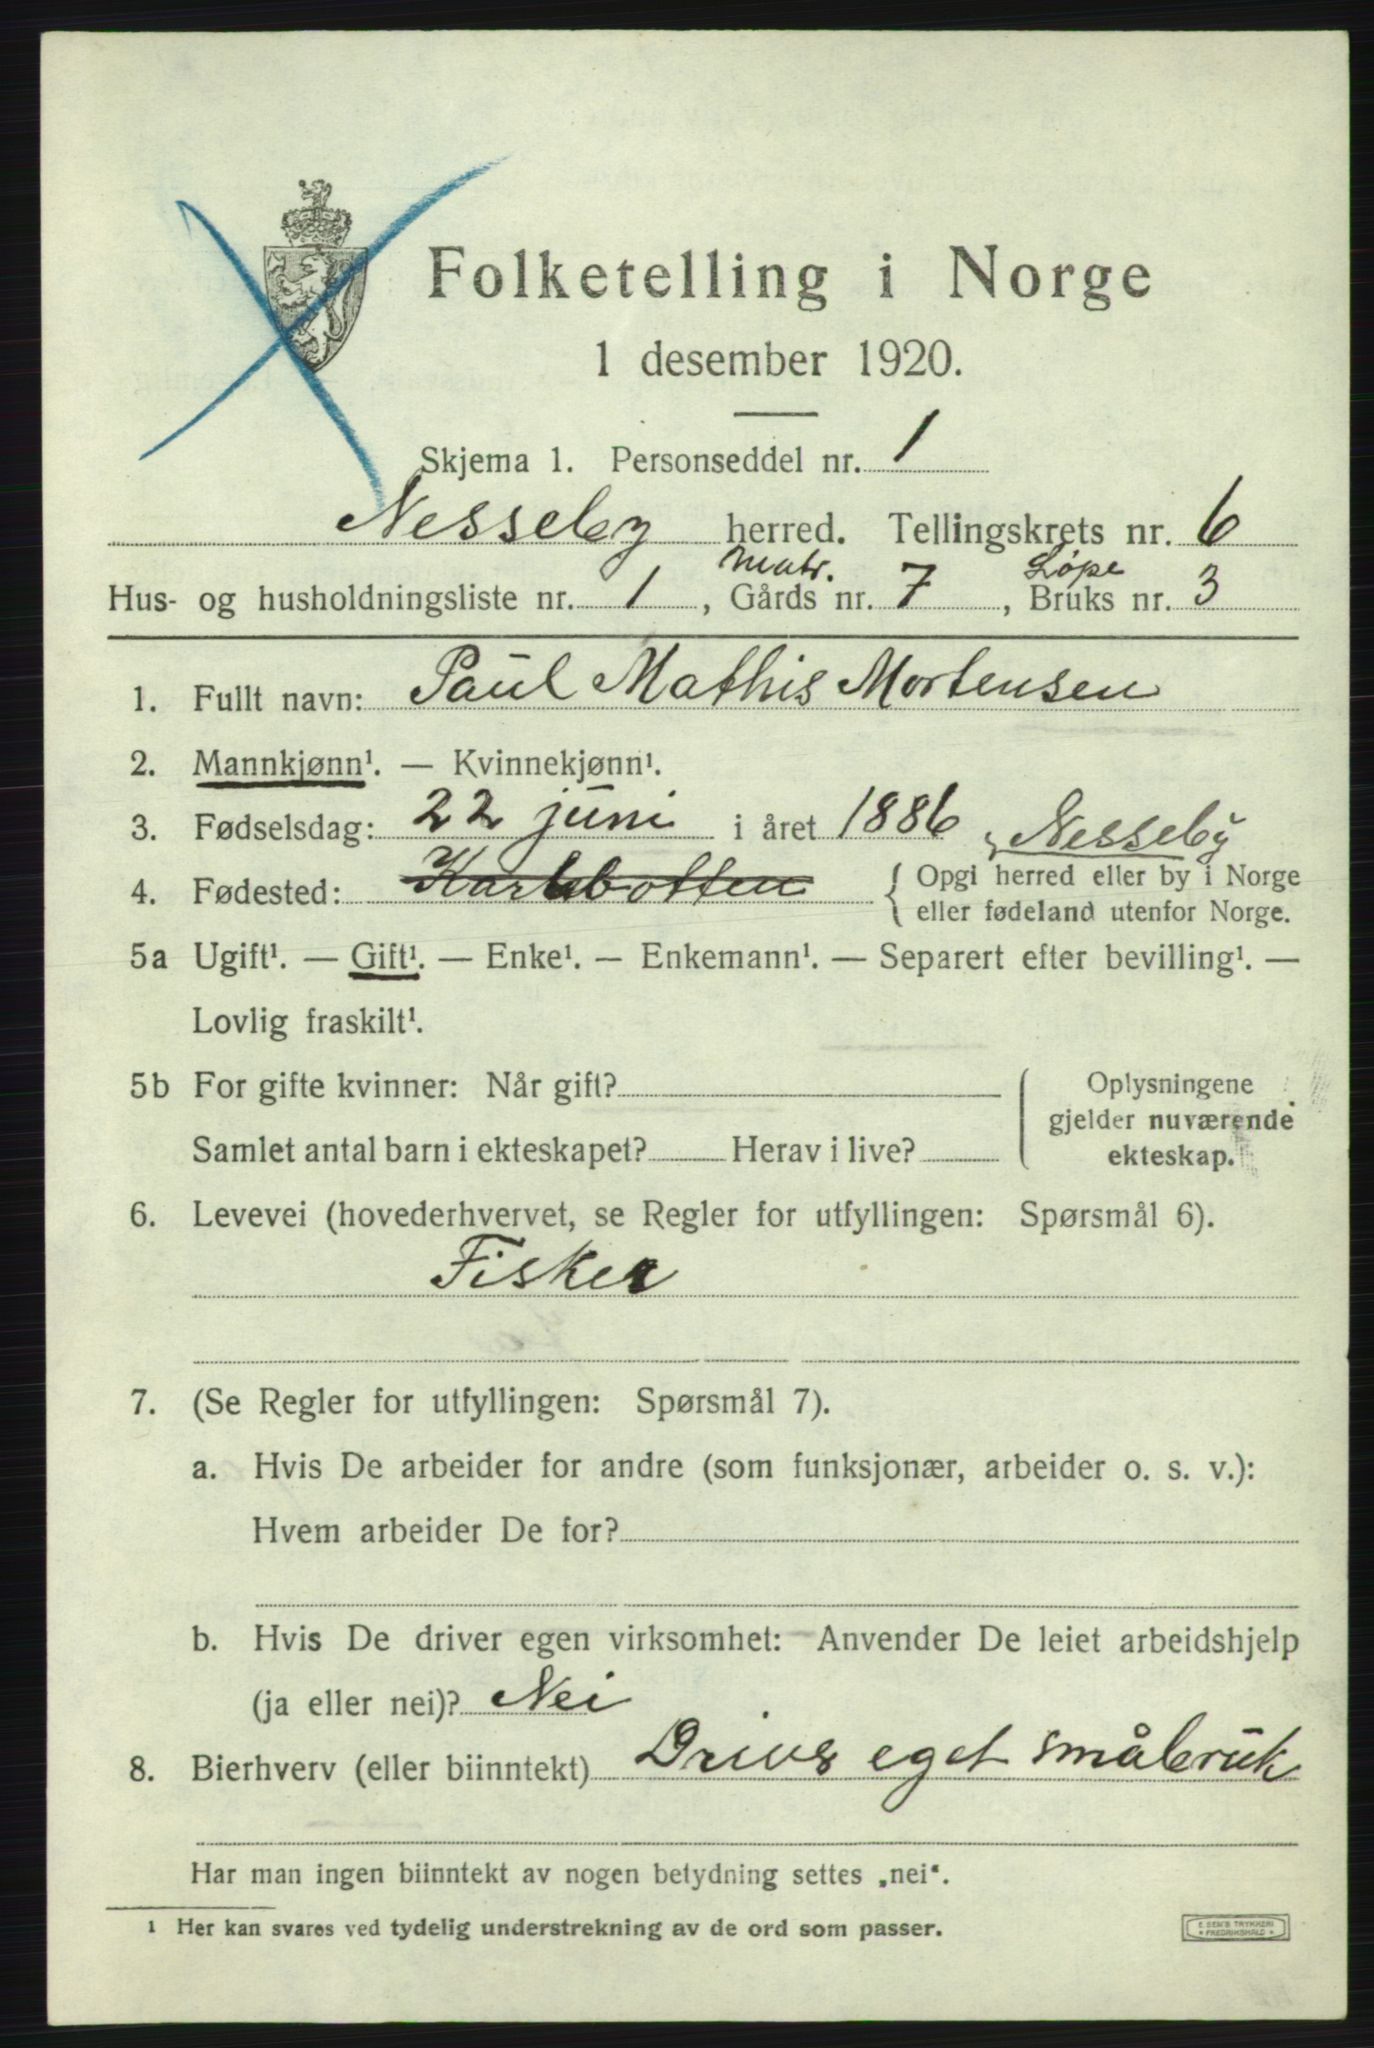 Folketelling i Norge
1 desember 1920.
Skjema 1. Personseddel nr. 1
Nesseby herred. Tellingskrets nr. 6
Matr. Løpe
Hus- og husholdningsliste nr. 1, Gårds nr. 7, Bruks nr. 3
1. Fullt navn: Paul Mathis Mortensen
2. Mannkjønn¹. — Kvinnekjønn¹.
3. Fødselsdag: 22 juni i året 1886
Nesseby
4. Fødested: Karlebotten { Opgi herred eller by i Norge
eller fødeland utenfor Norge.
5a Ugift¹. — Gift¹. — Enke¹. — Enkemann¹. — Separert efter bevilling¹. —
Lovlig fraskilt¹.
5b For gifte kvinner: Når gift? Oplysningene
gjelder nuværende
Samlet antal barn i ekteskapet? Herav i live? ekteskap.
6. Levevei (hovederhvervet, se Regler for utfyllingen: Spørsmål 6).
Fisker
7. (Se Regler for utfyllingen: Spørsmål 7).
a. Hvis De arbeider for andre (som funksjonær, arbeider o. s. v.):
Hvem arbeider De for?
b. Hvis De driver egen virksomhet: Anvender De leiet arbeidshjelp
(ja eller nei)? Nei
8. Bierhverv (eller biinntekt) Driver eget småbruk
Har man ingen biinntekt av nogen betydning settes „nei“.
1 Her kan svares ved tydelig understrekning av de ord som passer.
E SEM'S TRYKKERI
* FREDRIKSHALD *